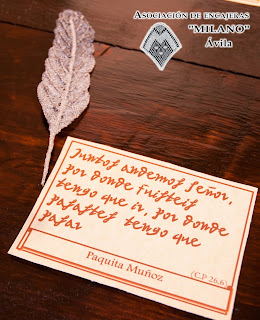 ASOCIACIÓN DE ENCAJERAS
"MILANO"
ÁVILA
Juntos andemos Señor,
por donde fuisteis
tengo que ir, por donde
pasastes tengo que
pasar
Paquita Muñoz
(C.P 26,6)